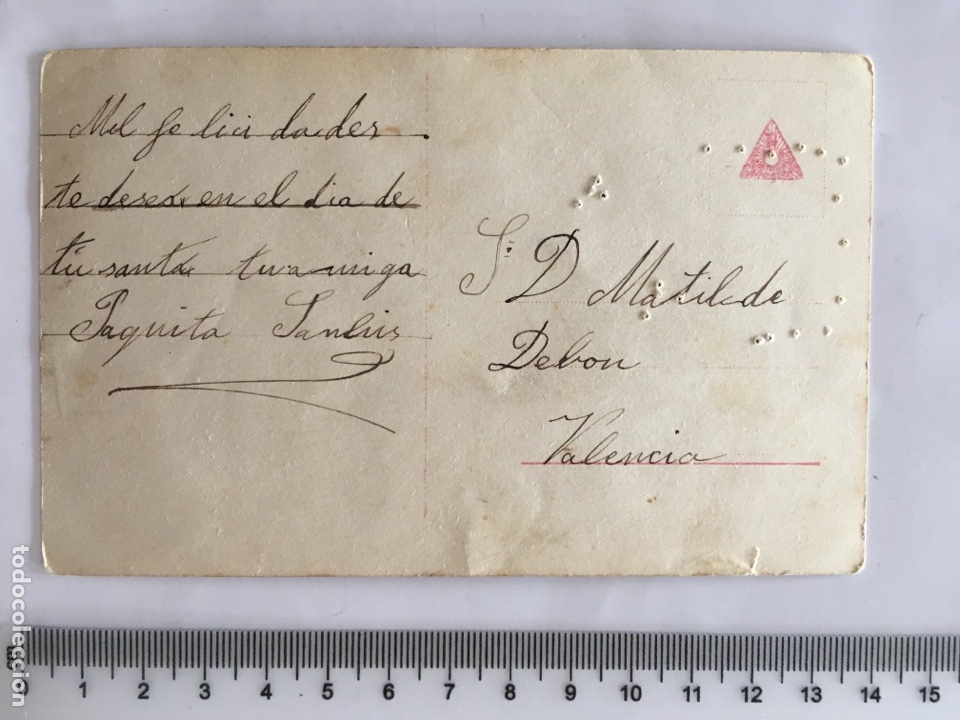 Mil felicidades
te deseo en el dia de
tu santo tu amiga
Paquita Sanluis
Sª D Matilde
Debon
Valencia
todocoleccion
cm 0 1 2 3 4 5 6 7 8 9 10 11 12 13 14 15